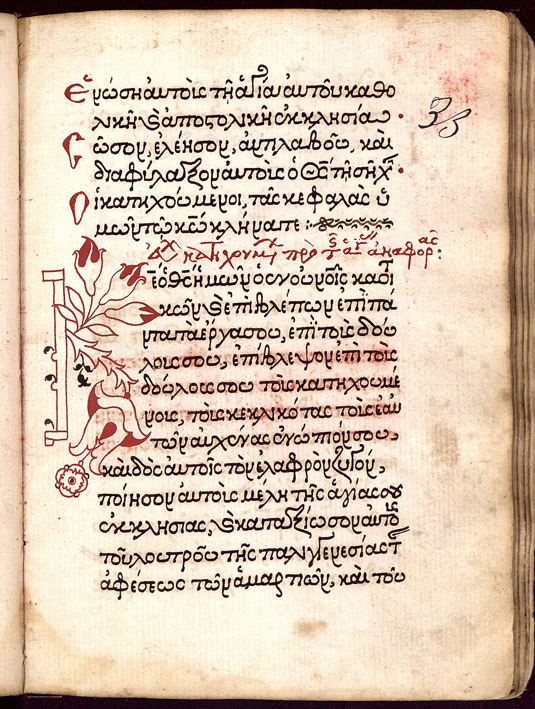 Ενώση αυτοὶς τῆ ἁγία αυτοῦ καθο
λικῆ ϗ αποστολικῆ εκκλησία
σῶσον, ἐλέησον, αντιλαβοῦ, καὶ
διαφύλαξον αὐτοὶς ὁ Θς τῆ σῆ χ
Οἱ κατηχούμενοι, τὰς κεφαλὰς ὑ
μῶν τῶ κω κλήνατε :
Εὐχ κατηχουμ πρὸ τ ἁγ αναφορας:
Κε ὁ θς ἡμῶν ὁ ἐν οὐνοῖς κατοι
κῶν ϗ ἐπιβλέπων ἐπὶ πά
ντα τὰ έργα σου, ἐπὶ τοὶς δού
λοις σου, ἐπίβλεψον ἐπὶ τοὶς
δούλοις σου τοὶς κατηχουμέ
νοις, τοὶς κεκλικότας τοὶς ἑαυ
τῶν αυχένας ενώπιόν σου,
καὶ δος αὐτοῖς τὸν ελαφρὸν ζυγόν,
ποίησον αυτοὶς μελη τῆς ἁγίας σου
εκκλησίας, ϗ καταξίωσον αυτοὶς
τοῦ λουτροῦ τῆς παλιγγενεσίας τ
αφέσεως τῶν ἁμαρτιῶν, καὶ τοῦ